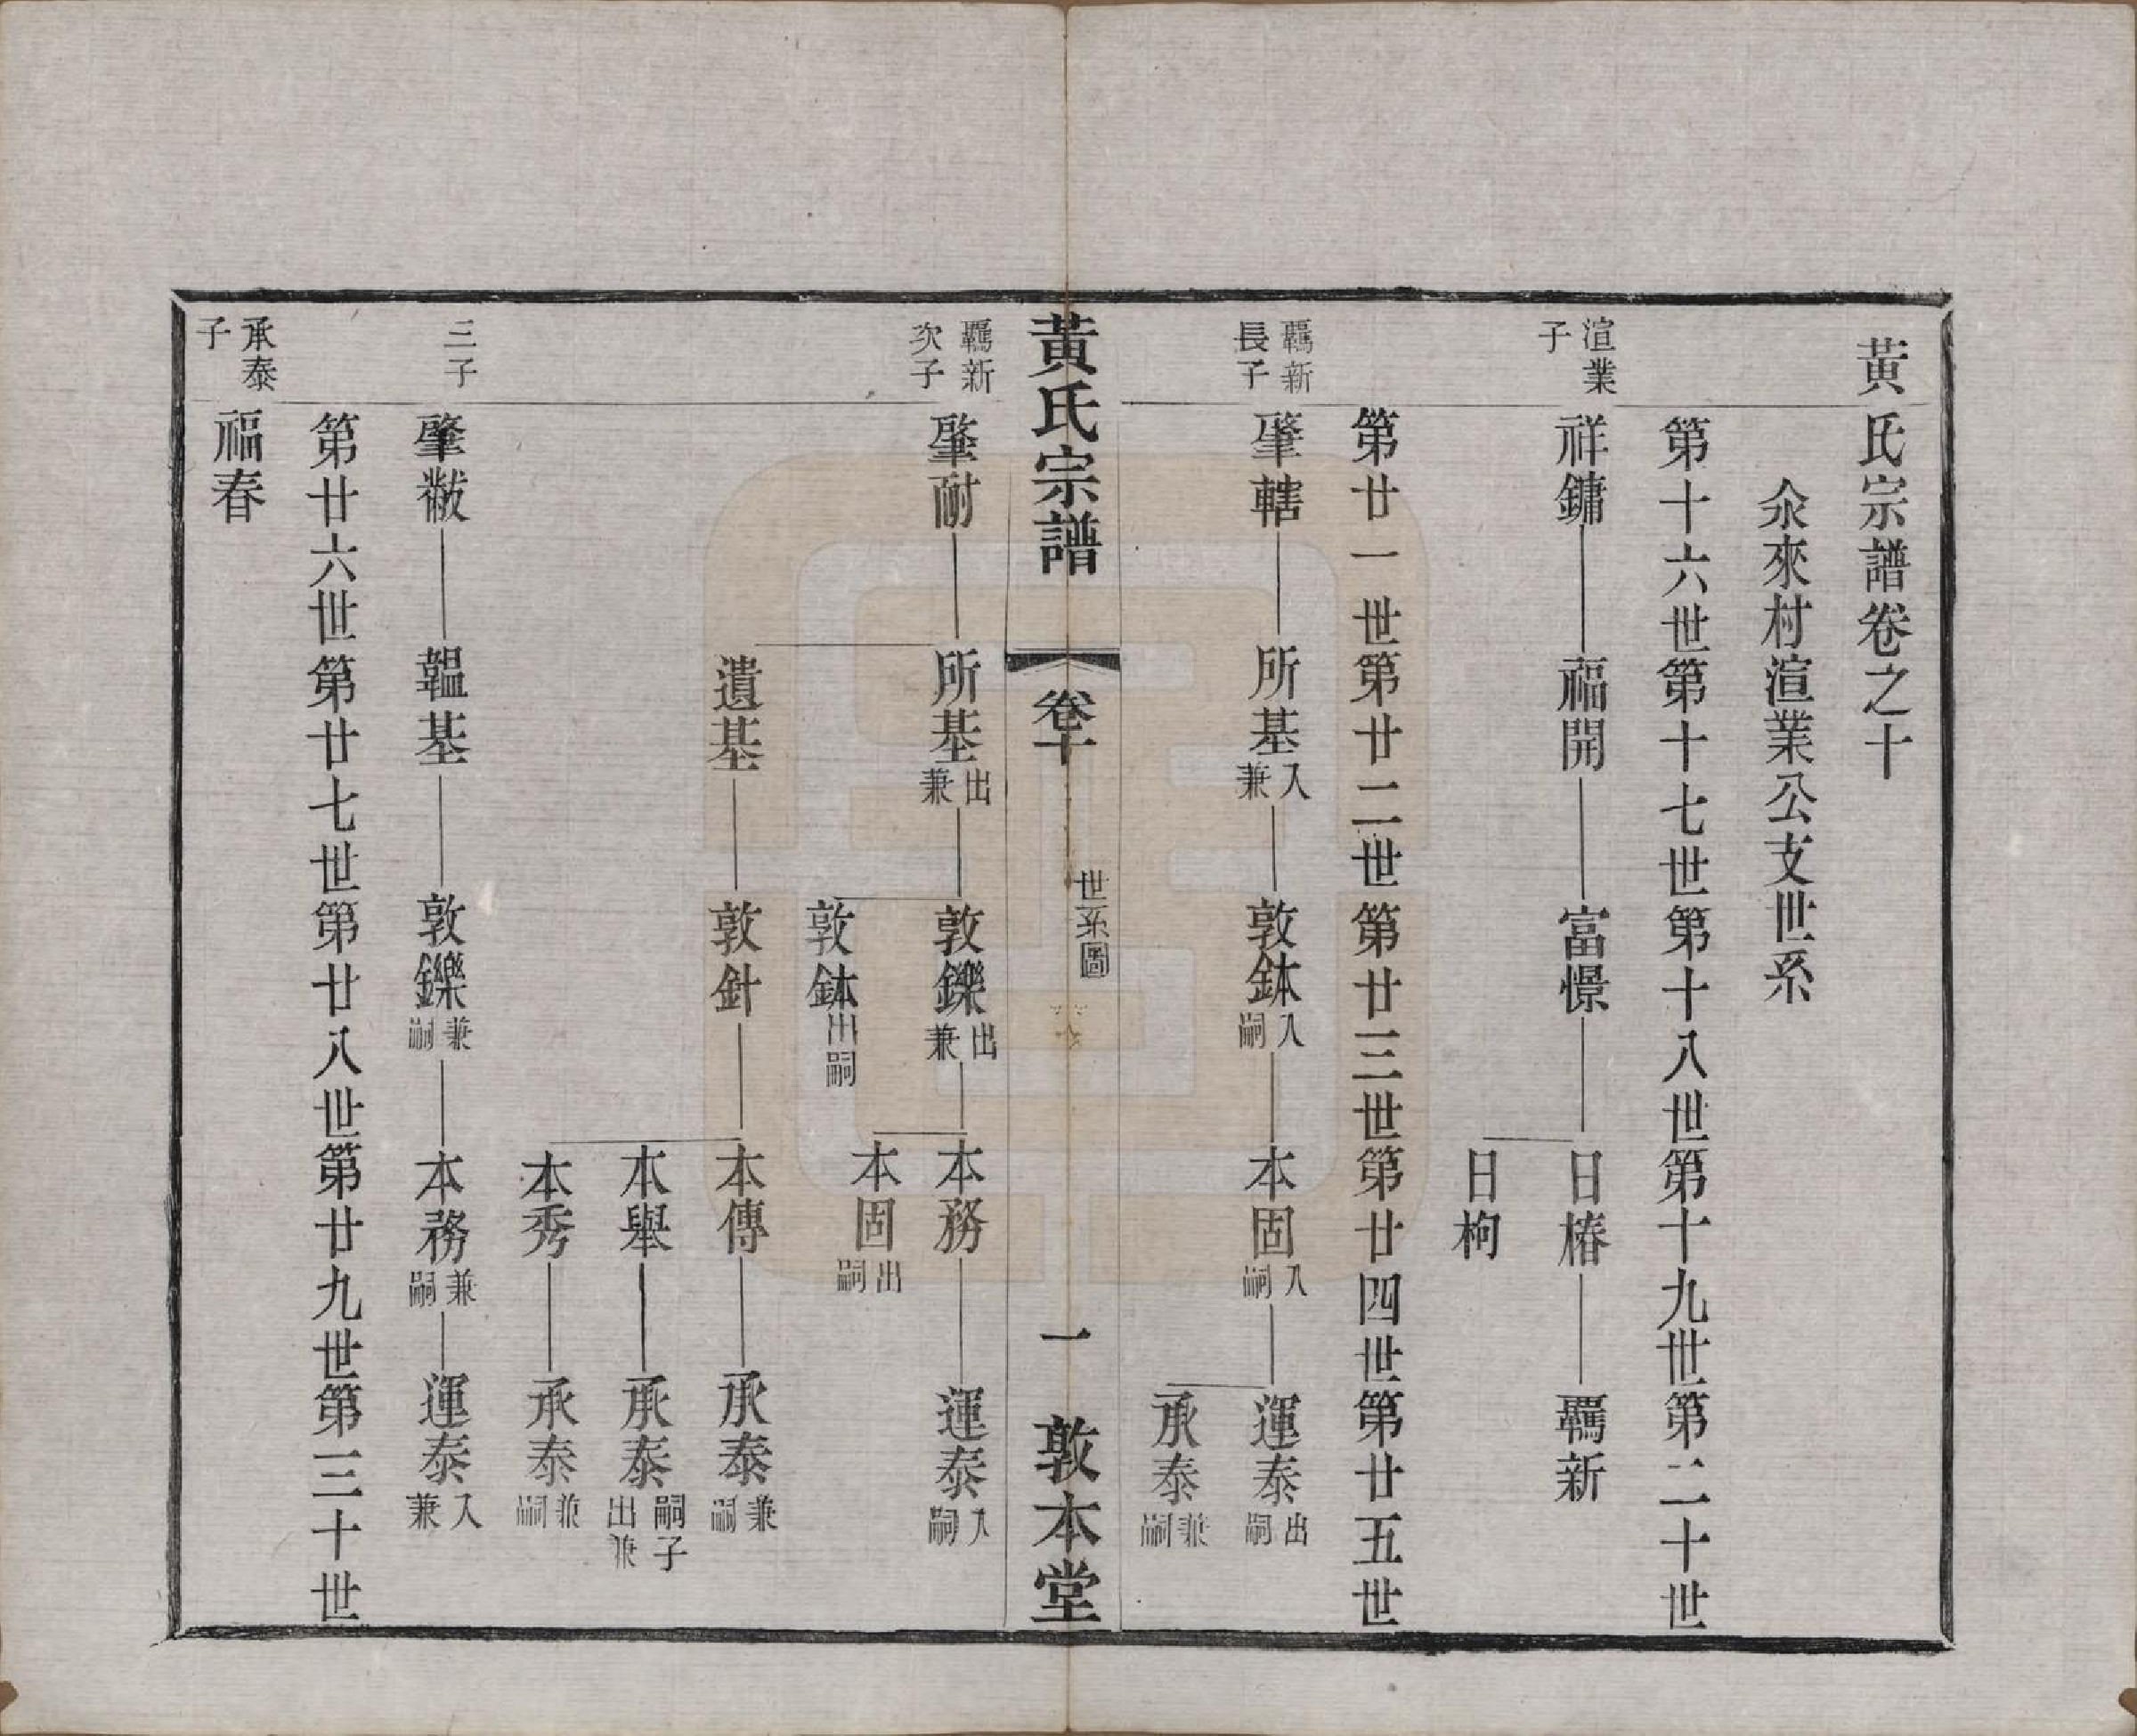 黃氏宗譜卷之十
汆來村渲業公支世系
第十六世第十七世第十八世第十九世第二十世
渲業子
祥鏞 福開 富憬 日椿 覊新
日枸
第廿一世第廿二世第廿三世第廿四世第廿五世
覊新長子
肇轄 所基入兼 敦鉢入嗣 本固入嗣 運泰出嗣
承泰兼嗣
黃氏宗譜 卷十 世系圖 一 敦本堂
覊新次子
肇耐 所基出兼 敦鑠出兼 本務 運泰入嗣
敦鉢出嗣 本固出嗣
遺基 敦針 本傳 承泰兼嗣
本舉 承泰嗣子出兼
本秀 承泰兼嗣
三子
肇黻 韞基 敦鑠兼嗣 本務兼嗣 運泰入兼
第廿六世第廿七世第廿八世第廿九世第三十世
承泰子
福春